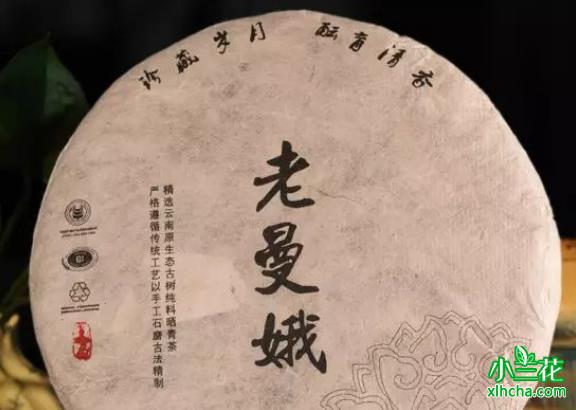 珍藏岁月 酝育清香
老曼娥
精选云南原生态古树纯料晒青茶
严格遵循传统工艺以手工石磨古法精制
QI
小兰花
xlhcha.com